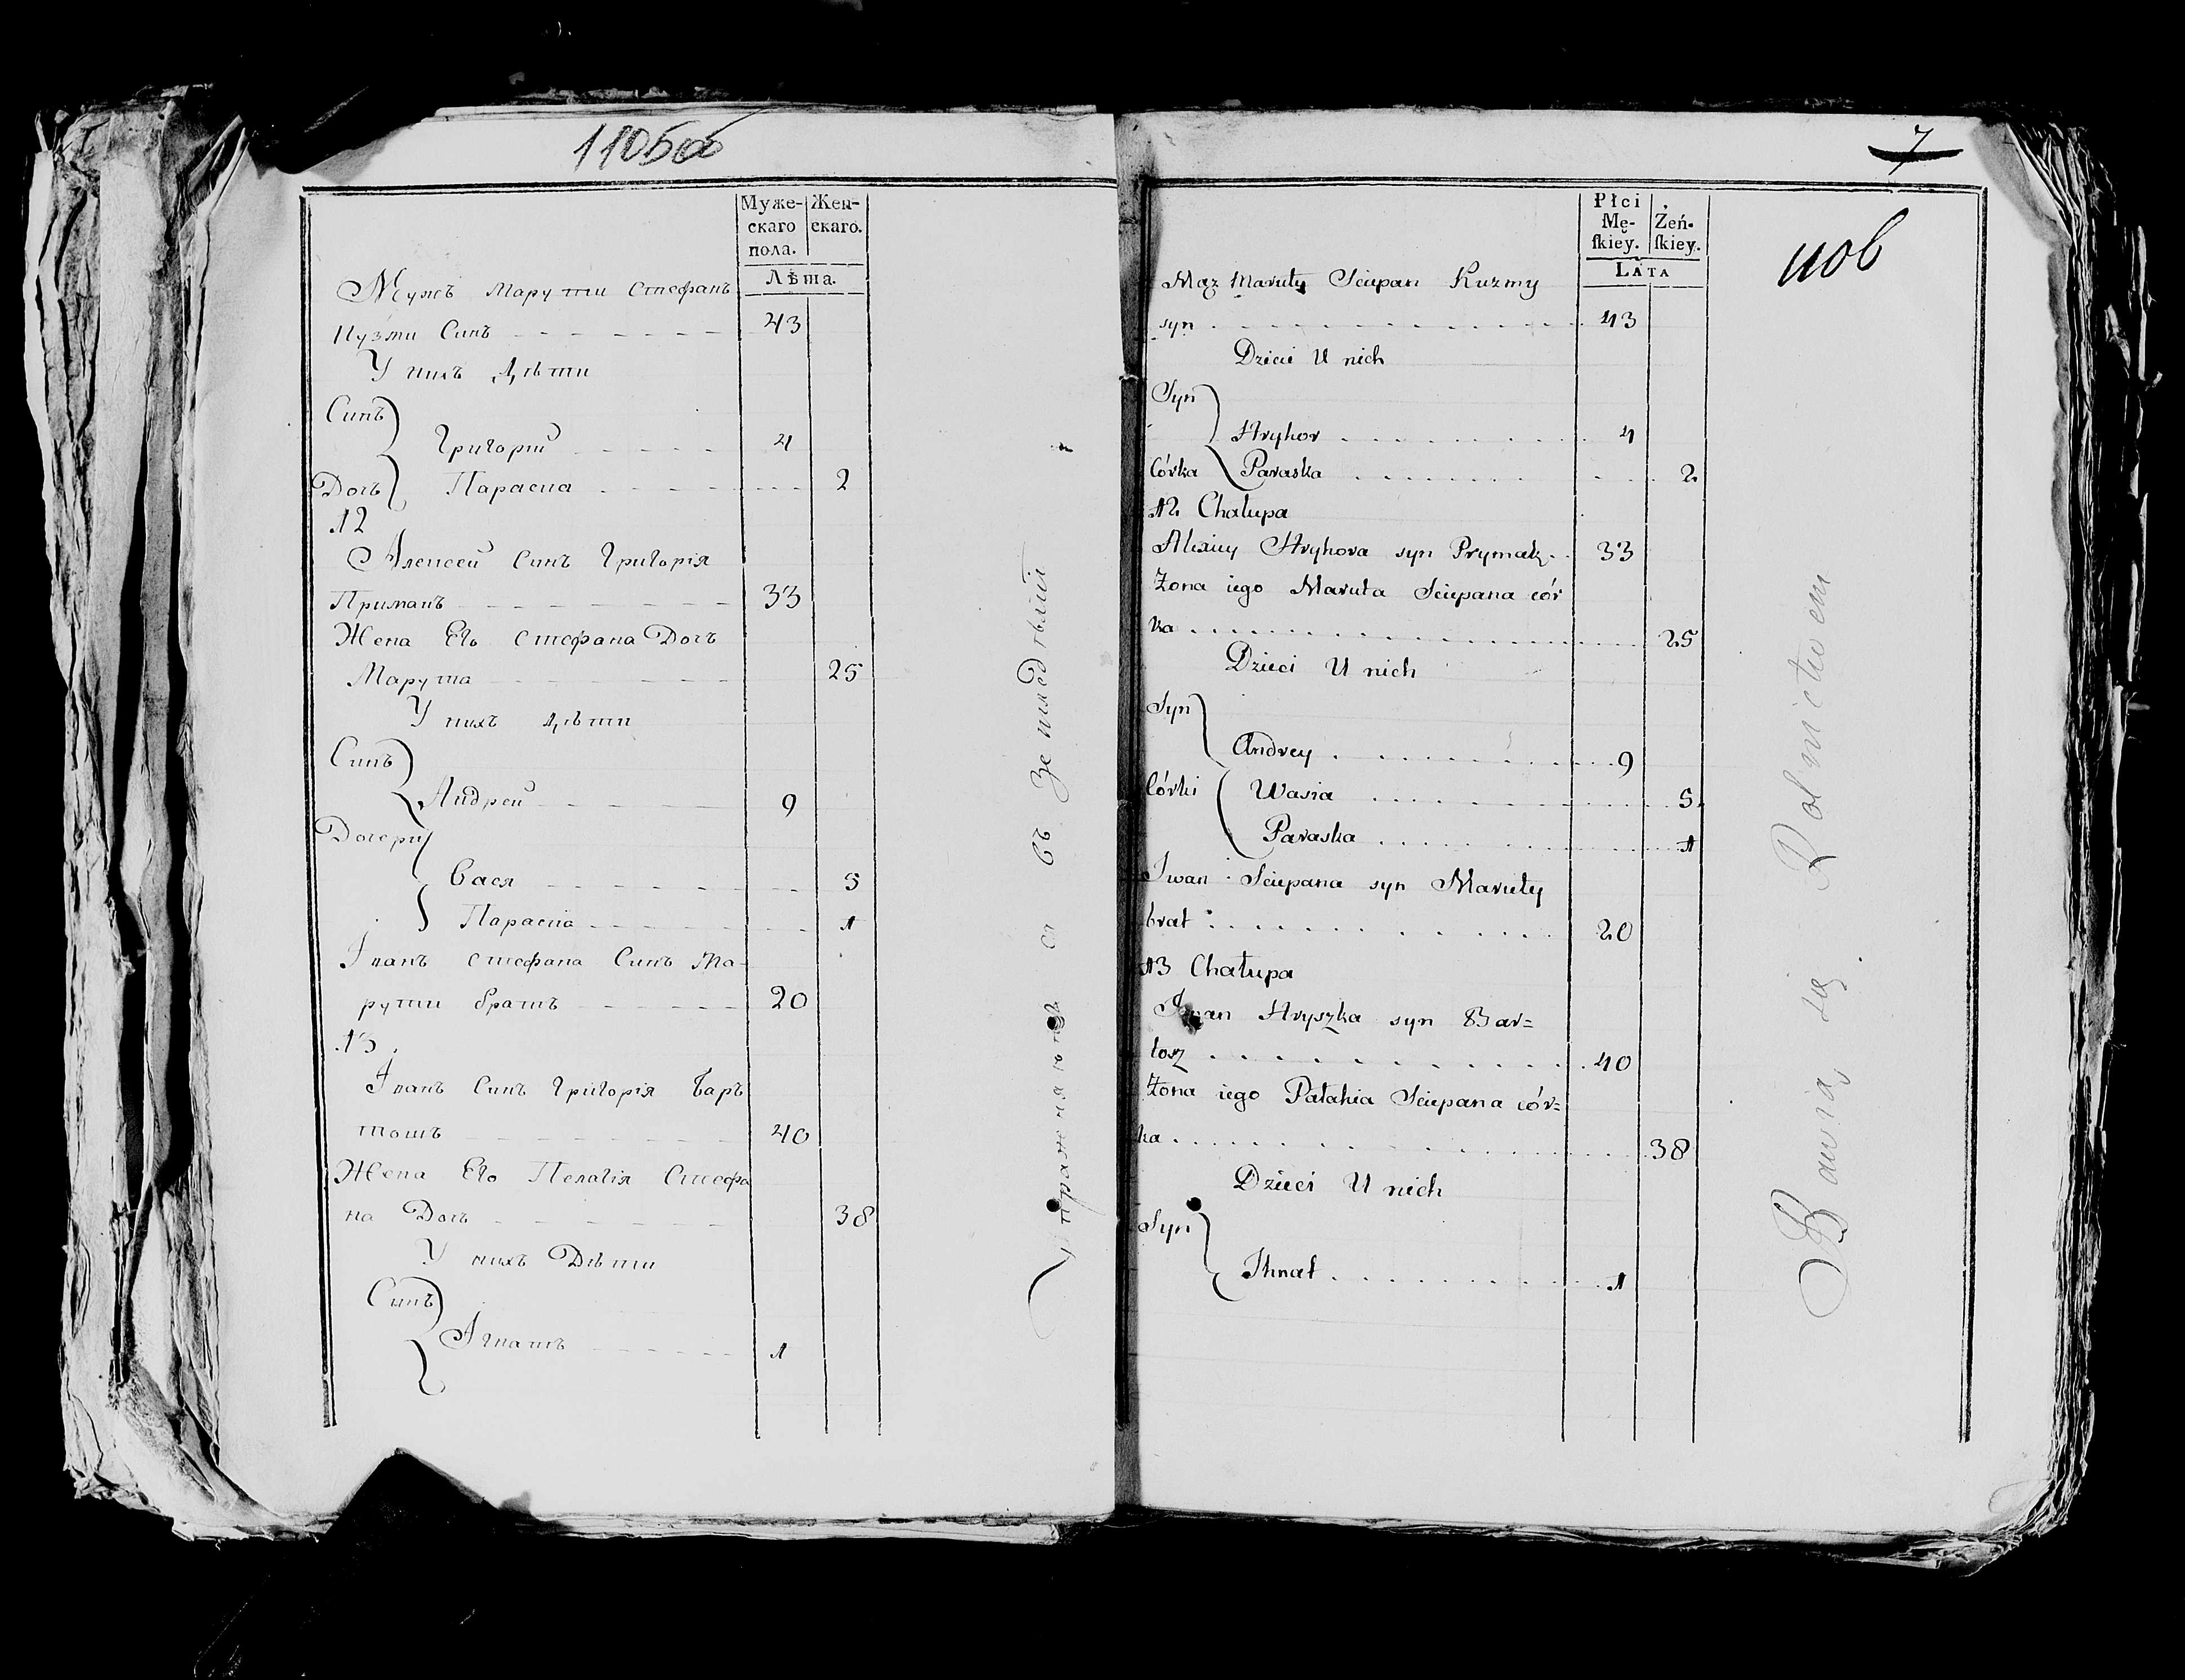 1105об
Муже-
скаго
пола.
Жен-
скаго.
Лѣта.
Мужъ Марути Стефанъ
Кузми Синъ 43
У нихъ Дѣти
Синъ
Григорій 4
Дочъ Параска 2
12
Алексей Синъ Григорія
Примакъ 33
Жена Его Стефана Дочъ
Марута 25
У нихъ Дѣти
Синъ
Андрей 9
Дочери
Вася 5
Параска 1
Іванъ Стефана Синъ Ма-
рути братъ 20
13
Іванъ Синъ Григорія Баръ
тошъ 40
Жена Его Пелагія Стефа
на Дочъ 38
У нихъ Дѣти
Синъ
Ігнатъ 1
Упражняются въ
7
1106
Płci
Mę-
ſkiey.
Żeń-
ſkiey.
LATA
Mąz Maruty Sciepan Kuzmy
syn 43
Dzieci U nich
Syn
Hryhor 4
Córka Paraska 2
12 Chałupa
Alexiey Hryhora syn Prymak 33
Żona iego Maruta Sciepana cór
ka 25
Dzieci U nich
Syn
Andrey 9
Córki Wasia 5
Paraska 1
Iwan Sciepana syn Maruty
brat 20
13 Chałupa
Iwan Hryszka syn Bar=
tosz 40
Żona iego Pałahia Sciepana cór=
ka 38
Dzieci U nich
Syn
Ihnat 1
Bawią się Rolnictwem